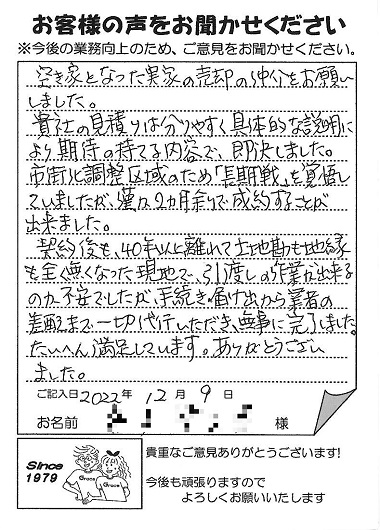 お客様の声をお聞かせください
※今後の業務向上のため、ご意見をお聞かせください。
空き家となった実家の売却の仲介をお願い
しました。
貴社の見積りは分りやすく具体的な説明に
より期待の持てる内容で、即決しました。
市街化調整区域のため「長期戦」を覚悟し
ていましたが、僅か2カ月余りで成約することが
出来ました。
契約後も、40年以上離れて土地勘も地縁
も全く無くなった現地で、引渡しの作業が出来る
のか不安でしたが、手続き・届け出から業者の
差配まで一切代行いただき、無事に完了しました。
たいへん満足しています。ありがとうござい
ました。
ご記入日 2022年 12月 9日
お名前 様
Since
1979
Grace
Grace
貴重なご意見ありがとうございます!
今後も頑張りますので
よろしくお願いいたします